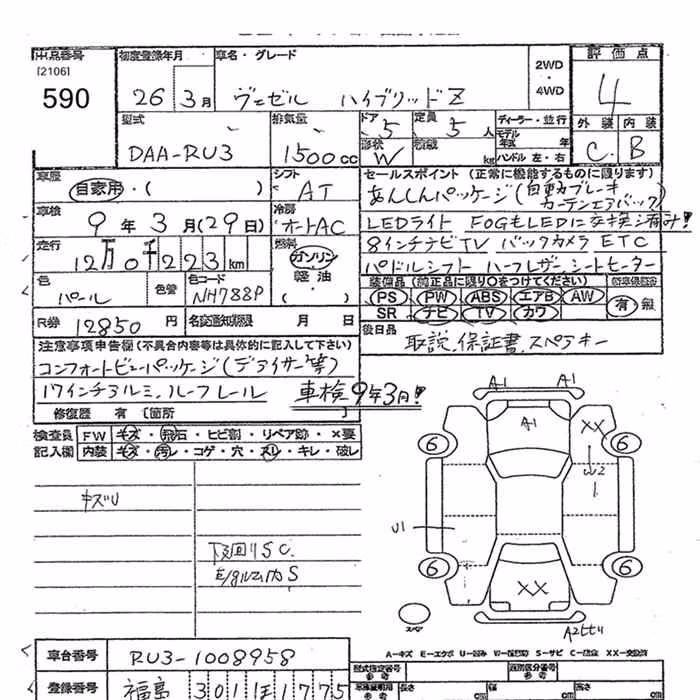 出品番号 初度登録年月 車名・グレード 2WD・4WD 評価点
[2106]
590 26 3月 ヴェゼル ハイブリッドZ 4
型式 排気量 ドア 定員 ディーラー・並行 外装 内装
DAA-RU3 1500cc 5 5人 モデル年式 年 C B
形状 W 積載 kg ハンドル 左・右
車歴 シフト セールスポイント (正常に機能するものに限ります)
自家用・( ) AT あんしんパッケージ(自動ブレーキ
カーテンエアバッグ)
車検 冷房
9年3月(29日) オートAC LEDライト FOGもLEDに交換済み!
走行 燃料 8インチナビTV バックカメラ ETC
12万0千223km ガソリン パドルシフト ハーフレザーシートヒーター
軽油
( )
色 色替 色コード 装備品 (純正品に限り○をつけてください)
パール NH788P PS PW ABS エアB AW 有 無
SR ナビ TV カワ
R券 12850円 名変通知期限 月 日 後日品
取説.保証書.スペアキー
注意事項申告欄(不具合内容等は具体的に記入して下さい)
コンフォートビューパッケージ(デアイサー等)
17インチアルミ.ルーフレール 車検9年3月!
修復歴 有 [箇所
検査員 FW キズ・飛石・ヒビ割・リペア跡・×要
記入欄 内装 キズ・汚レ・コゲ・穴・スレ・キレ・破レ
キズU
下回りSC
E/gルーム内S
A1 A1
A1 XX
6 6
U2
1
U1
6 6
XX
スペア
A2ヒビ
A-キズ E-エクボ U-凹み W-補修跡 S-サビ C-腐食 XX-交換済
車台番号 RU3-1008958 型式指定番号 参考 類別区分番号 参考
登録番号 福島 301 1775 長さ cm 幅 cm 高さ cm